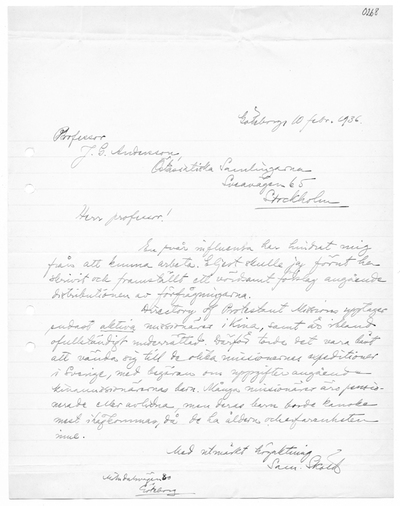 0268
Göteborg 10 febr. 1936.
Professor
J. G. Andersson
Östasiatiska Samlingarna
Sveavägen 65
Stockholm
Herr professor!
En svår influenza har hindrat mig
från att kunna arbeta. Eljest skulle jag förut ha
skrivit och framställt ett vördsamt förslag angående
distributionen av förfrågningarna.
Directory of Protestant Missions upptager
endast aktiva missionärer i Kina, samt är ibland
ofullständigt underrättad. Därför torde det vara bäst
att vända sig till de olika missionernas expeditioner
i Sverige, med begäran om uppgifter angående
kinamissionärernas barn. Många missionärer äro pensio-
nerade eller avlidna, men deras barn borde kanske
mest ihågkommas, då de ha åldern och erfarenheten
inne.
Med utmärkt högaktning
Sam. Sköld
Göteborg